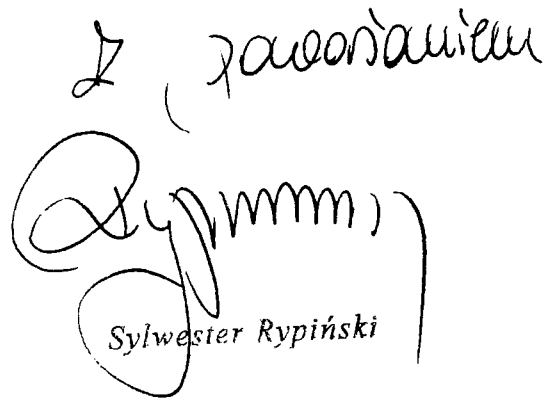 Z poważaniem
Sylwester Rypiński